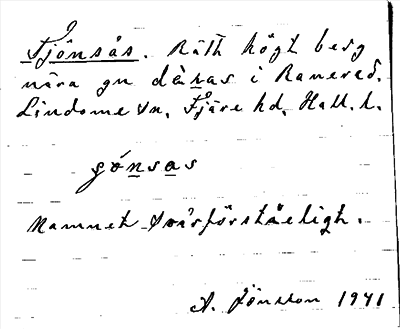 Tjönsås. Rätt högt berg
nära gn dèras i Ranered.
Lindome sn, Fjäre hd, Hall. l.
gónsas
Namnet svårförståeligt.
A. Jönsson 1941